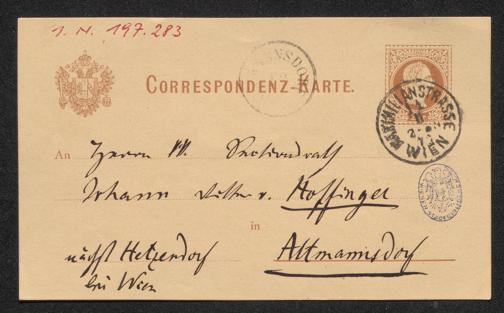 I. N. 197.283
CORRESPONDENZ-KARTE.
MAXIMILIANSTRASSE
WIEN
An Herrn M. Sectionsrath
Johann Ritter v. Hoffinger
in
Altmannsdorf
nächst Hetzendorf
bei Wien